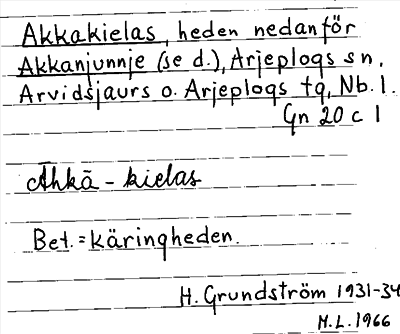 Akkakielas, heden nedanför
Akkanjunnje (se d.), Arjeplogs sn,
Arvidsjaurs o. Arjeplogs tg, Nb. l.
Gn 20 c 1
Āhkā - kielas
Bet. = käringheden.
H. Grundström 1931-34
M.L. 1966